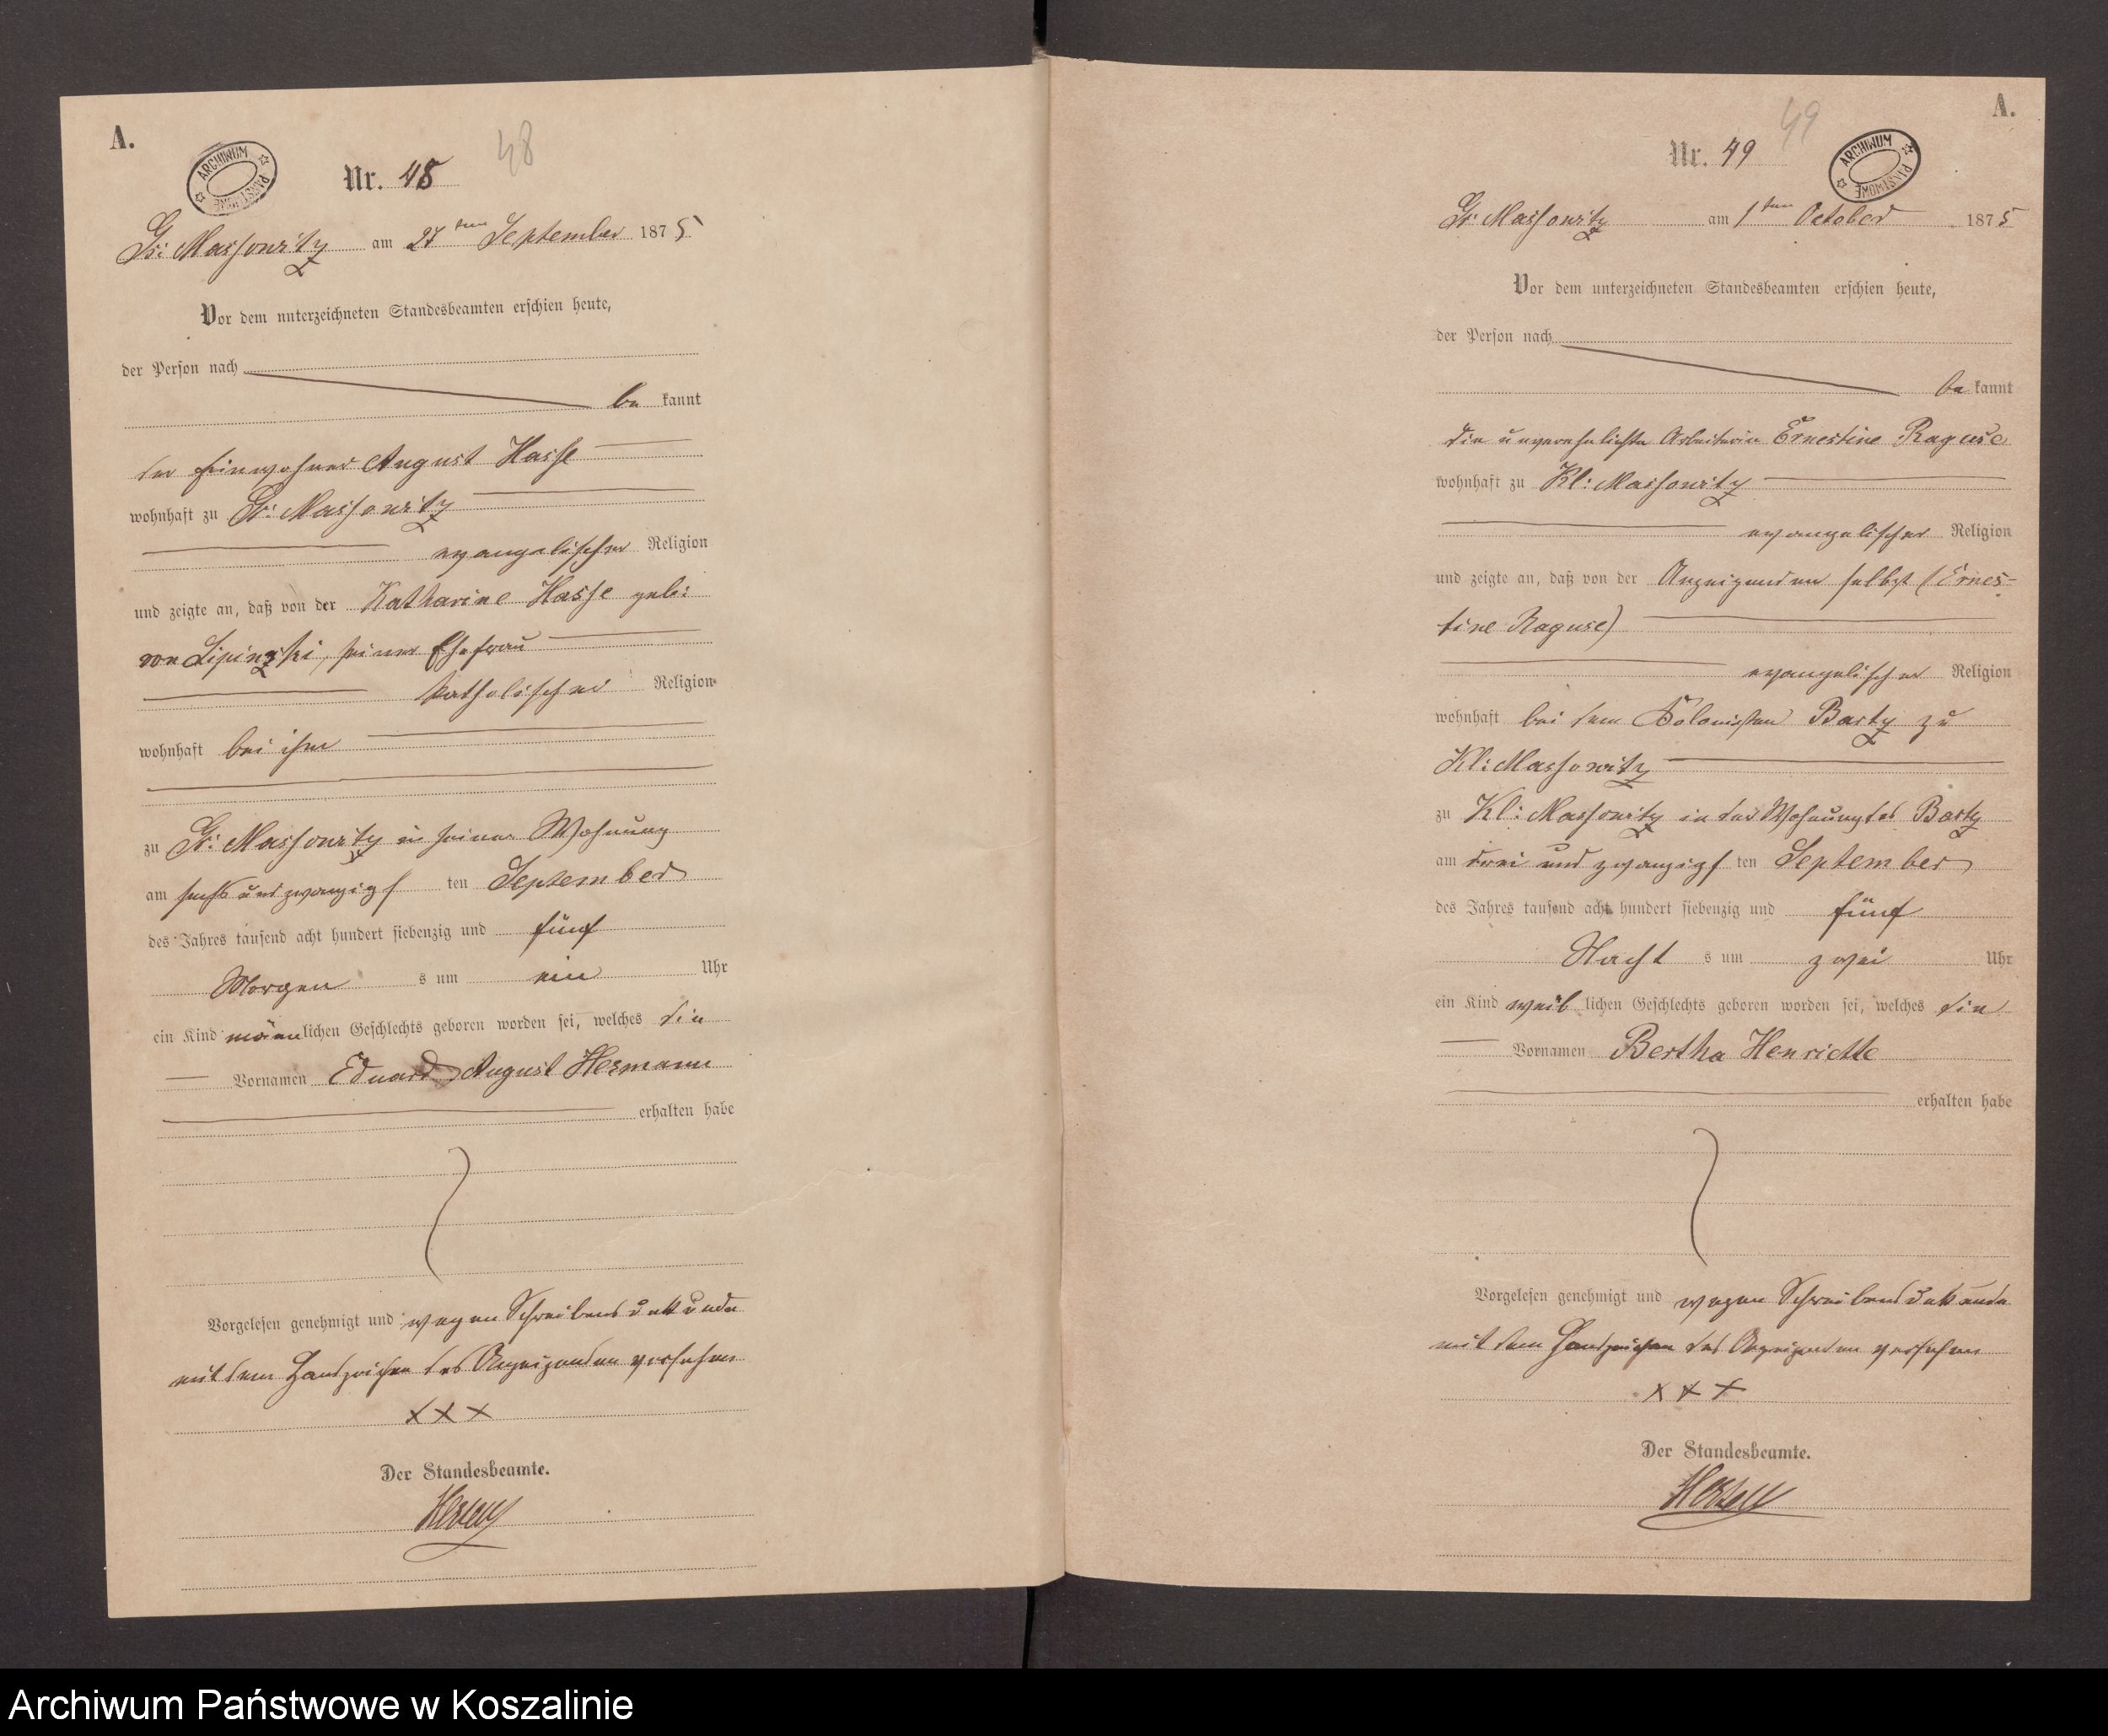 A.
ARCHIWUM PAŃSTWOWE
48
Nr. 48
Gr: Massowitz am 27ten September 1875
Vor dem unterzeichneten Standesbeamten erschien heute,
der Person nach
be kannt
der Einwohner August Hasse
wohnhaft zu Gr: Massowitz
evangelischer Religion
und zeigte an, daß von der Katharine Hasse geb:
von Lipinzki, seiner Ehefrau
katholischer Religion
wohnhaft bei ihm
zu Gr: Massowitz in seiner Wohnung
am sechs und zwanzigs ten September
des Jahres tausend acht hundert siebenzig und fünf
Morgen s um ein Uhr
ein Kind männlichen Geschlechts geboren worden sei, welches die
Vornamen Eduard August Hermann
erhalten habe
Vorgelesen genehmigt und wegen Schreibensunkunde
mit dem Handzeichen des Anzeigenden versehen
x x x
Der Standesbeamte.
A.
49
Nr. 49
ARCHIWUM PAŃSTWOWE
Gr: Massowitz am 1ten October 1875
Vor dem unterzeichneten Standesbeamten erschien heute,
der Person nach
be kannt
die unverehelichte Arbeiterin Ernestine Raguse
wohnhaft zu Kl: Massowitz
evangelischer Religion
und zeigte an, daß von der Anzeigenden selbst (Ernes-
tine Raguse)
evangelischer Religion
wohnhaft bei dem Kolonisten Bartz zu
Kl: Massowitz
zu Kl: Massowitz in der Wohnung des Bartz
am drei und zwanzigs ten September
des Jahres tausend acht hundert siebenzig und fünf
Nacht s um zwei Uhr
ein Kind weib lichen Geschlechts geboren worden sei, welches die
Vornamen Bertha Henriette
erhalten habe
Vorgelesen genehmigt und wegen Schreibensunkunde
mit dem Handzeichen des Anzeigenden versehen
x x x
Der Standesbeamte.
Archiwum Państwowe w Koszalinie